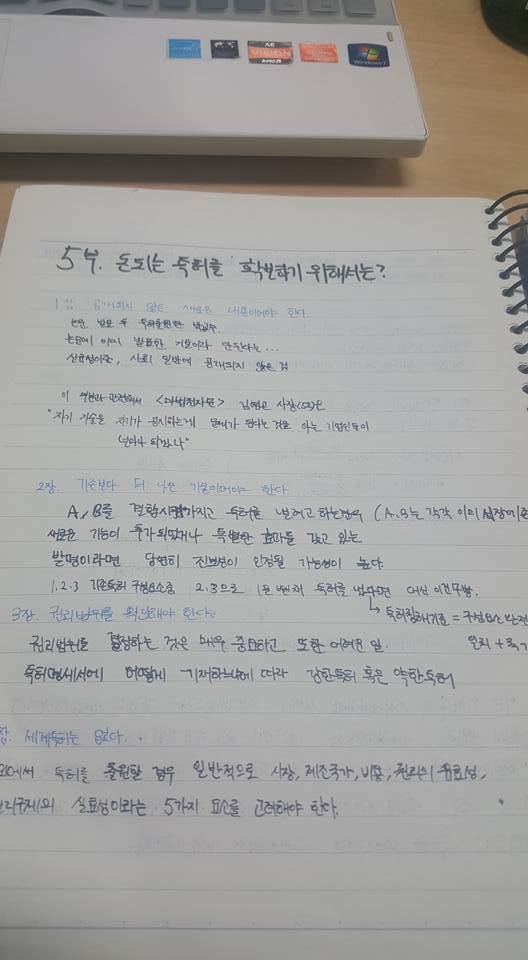 AMD
VISION
AMD
Windows 7
5부. 돈되는 특허를 확보하기 위해서는?
1장 공개되지 않은 새로운 내용이어야 한다.
논문 발표 후 특허출원한
논문에 이미 발표한 기술이라 안된다는...
신규성이란, 사회 일반에 공개되지 않은 것
이 관련해서 사장(52)은
"자기 기술을 자기가 공지하는게 문제가 된다는 것을 아는 기업인들이
얼마나 되겠나"
2장. 기술보다 더 나은 기술이어야 한다.
A, B를 결합시켜가지고 특허를 낼려고 하는경우 (A, B는 각각 이미
새로운 기능이 추가되었거나 특별한 효과를 갖고 있는
발명이라면 당연히 진보성이 인정될 가능성이 높다.
1.2.3 기존특허 구성요소중 2.3으로 특허를 냈다면
→ 특허침해기준 = 구성요소 완전
일치 +
3장. 권리범위를 확보해야 한다.
권리범위를 결정하는 것은 매우 중요하고 또한 어려운 일.
특허명세서에 어떻게 기재하느냐에 따라 강한특허 혹은 약한특허
장. 세계특허는 없다.
외에서 특허를 출원할 경우 일반적으로 시장, 제조국가, 비용, 권리의 유효성,
권리규제의 실효성이라는 5가지 요소를 고려해야 한다.